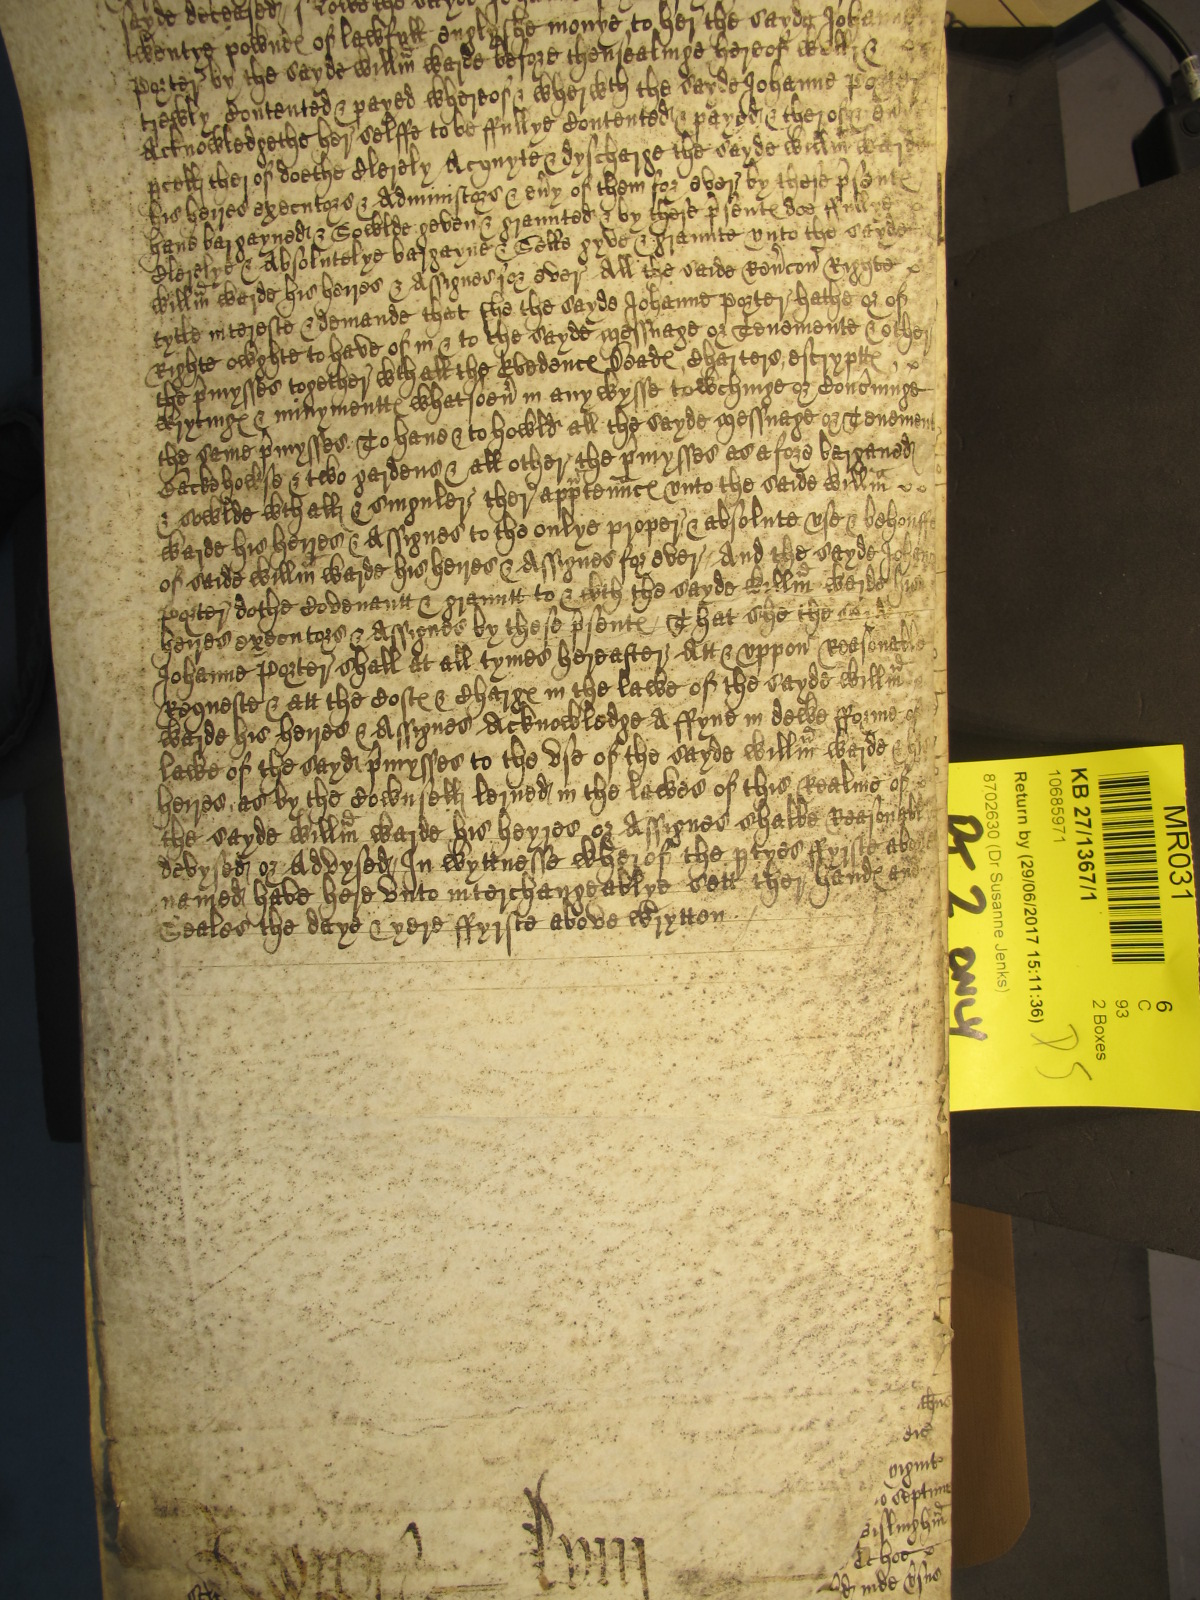 sayde deceased
twentye pownde of lawfull englyshe monye to her the sayde Johanne
Porter by the sayde Willm warde before thensealinge hereof well &
trewly Contented & payed wherof & wherwth the sayde Johanne Porter
Acknowledgethe her selffe to be ffullye Contented & payed & therof &
pcell therof doethe Clerely Acquyte & dyscharge the sayde willm warde
his heires executors & Administors & eny of them for ever by these psente
have bargayned & Sowlde geven & graunted & by these psente doe ffullye
Clerelye & Absolutelye bargayne & Selle gyve & graunte unto the sayde
willm warde his heires & Assignes for ever All the saide Revcon Righte
tytle intereste & demande that she the sayde Johanne porter hathe or of
Righte owghte to have of in & to the sayde messuage or Tenemente & other
the pmysses together wth all the Evedence Deade Charters escrypte
wrytinge & minymente whatsoev in any wysse towchinge or Concninge
the same pmysses To have & to howld all the sayde messuage or Tenement
Backehowse & two gardens & all other the pmysses as afore barganed
& sowlde wth all & Singuler ther apptennce unto the saide willm
warde his heires & Assignes to the onlye proper & absolute use & behouffe
of saide willm warde his heires & Assignes for ever And the sayde Johanne
porter dothe Covenantt & grauntt to & wth the sayde willm warde his
heires executors & Assignes by these psente That she the sayde
Johanne Porter shall at all tymes hereafter Att & uppon Reasonable
Requeste & att the Coste & Charge in the lawe of the sayde willm
warde his heires & Assignes Acknowledge A ffyne in dewe fforme of
lawe of the sayd pmysses to the Use of the sayde willm warde & his
heires as by the Cownsell lerned in the lawes of this Realme of
the sayde willm warde his heyres or Assignes shalbe Reasonable
devysed or Advysed In wyttnesse wherof the ptyes ffyrste above
named have here unto interchangeablye Sett ther hande and
Seales the daye & yere ffyrste above wrytton
MR031
KB 27/1367/1
10685971
Return by (29/06/2017 15:11:36)
8702630 (Dr Susanne Jenks)
6
C
93
2 Boxes
DS
Pt 2 ONLY